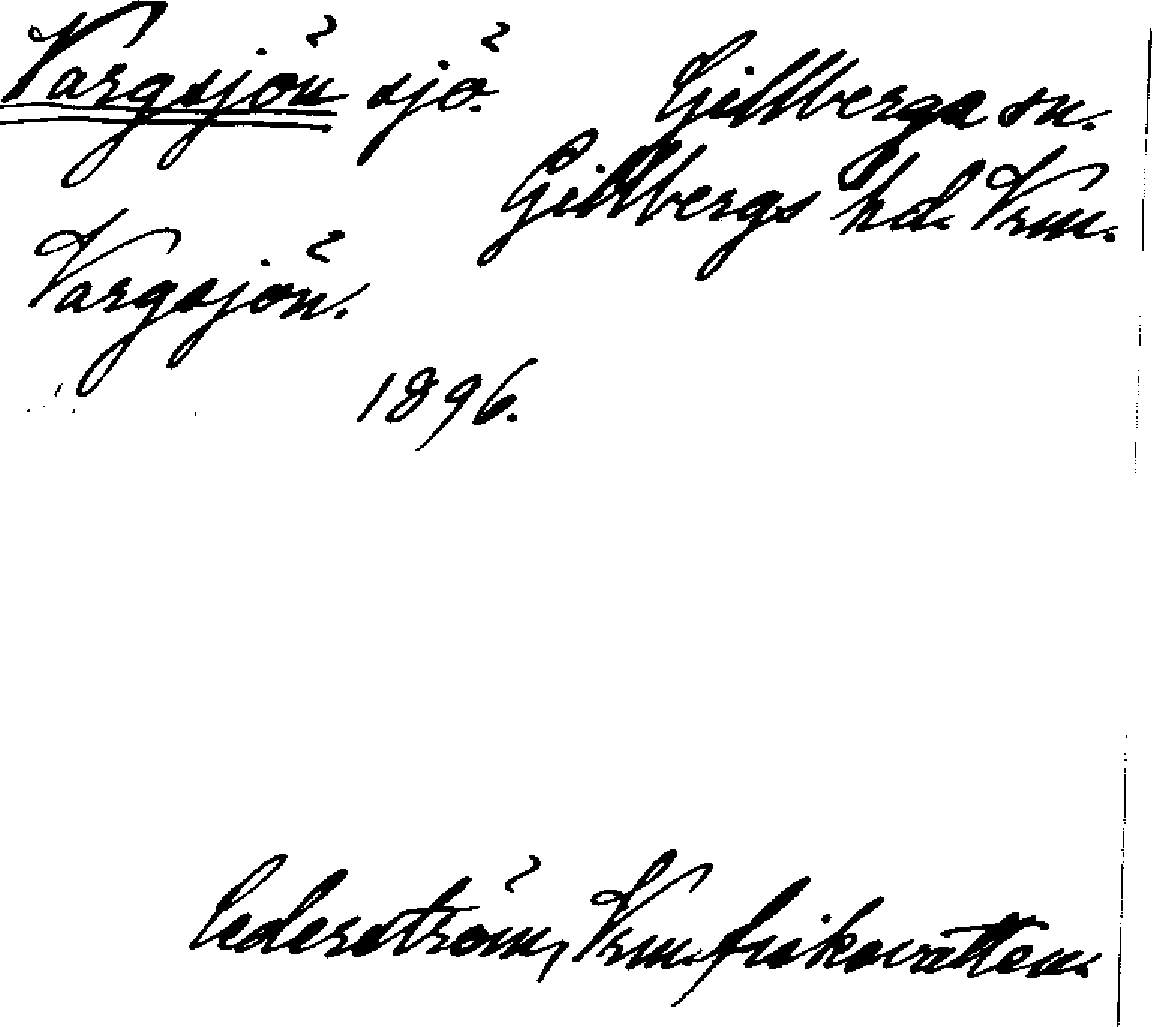 Vargsjön sjö. Gillberga sn.
Gillbergs hd. Vrm.
Vargsjön.
1896.
Cederström, Vrm. fiskevatten.